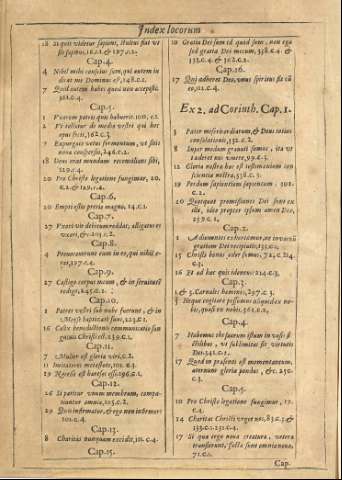 Index locorum
18 Si quis videtur sapiens, stultus fiat ut
sit sapiens,
Cap.4.
4 Nihil mihi conscius sum, qui autem iu
dicat me Dominus est, 148.c.1.
7 Quid autem habes quod non accepisti.
361.c.4.
Cap.5.
1 Vxorem patris quis habuerit, 100.c.1.
2 Vt tollatur de medio vestri qui hoc
opus fecit, 362.c.3.
7 Expurgate vetus fermentum, ut sitis
nova conspersio, 246.c.2.
18 Deus erat mundum reconcilians sibi,
329.c.4.
20 Pro Christo legatione fungimur, 10.
c.2. & 129.c.4.
Cap.6.
20 Empti estis pretio magno, 14.c.1.
Cap.7.
27 Vxori vir debitum reddat, alligatus es
uxori, &c. 213.c.2.
Cap.8.
4
Cap.9.
27 Castigo corpus meum, & in servitutem
redigo, 245.c.2.
Cap.10.
1 Patres vestri sub nube fuerunt, & in
Moyse baptizati sunt, 223.c.1.
16 Calix benedictionis communicatio san
guinis Christi est, 239.c.1.
Cap.11.
7 Mulier est gloria viri, c.2.
11 Imitatores mei estote, 101.c.3.
19
Cap.12.
26 Si patitur unum membrum, compa-
tiuntur omnia, 105.c.2.
29 Quis infirmatur, & ego non infirmor?
101.c.4.
Cap.13.
8 Charitas nunquam excidit, 10.c.4.
Cap.15.
10 Gratia Dei sum id quod sum, non ego
sed gratia Dei mecum, 358.c.4. &
133.c.4. & 362.c.1.
Cap.16.
17 Qui adhaeret Deo, unus spiritus fit cū
eo, 12.c.4.
Ex 2. ad Corinth. Cap.1.
3 Pater misericordiarum, & Deus totius
consolationis, 132.c.2.
8 Supra modum gravati sumus, ita ut
taederet nos vivere, 99.c.3.
12 Gloria nostra haec est testimonium con
scientiae nostrae, 338.c.3.
19 Perdam sapientiam sapientum, 302.
c.2.
20 Quotquot promissiones Dei sunt ex
illo, ideo propter ipsum amen Deo,
239.c.1.
Cap.2.
1 Adiuvantes exhortamur, ne in vacuū
gratiam Dei recipiatis, 133.c.1.
15 Christi bonus odor sumus, 72.c.2.
c.3.
16 Et ad haec quis idoneus? 214.c.3.
Cap.3.
3 & 3. Carnales homines, 297.c.3.
5
Cap.4.
7 Habemus thesaurum istum in vasis fi
ctilibus, ut sublimitas sit virtutis
Dei. 341.c.1.
17 Quod in praesenti est momentaneum,
aeternum gloriae pondus, &c. 250.
c.3.
Cap.5.
10 Pro Christo legatione fungimur, 12.
c.4.
14 Charitas Christi urget nos, 83.c.3. &
133.c.1. 232.c.4.
17 Si qua ergo nova creatura, vetera
transierunt, facta sunt omnia nova,
71.c.1.
Cap.